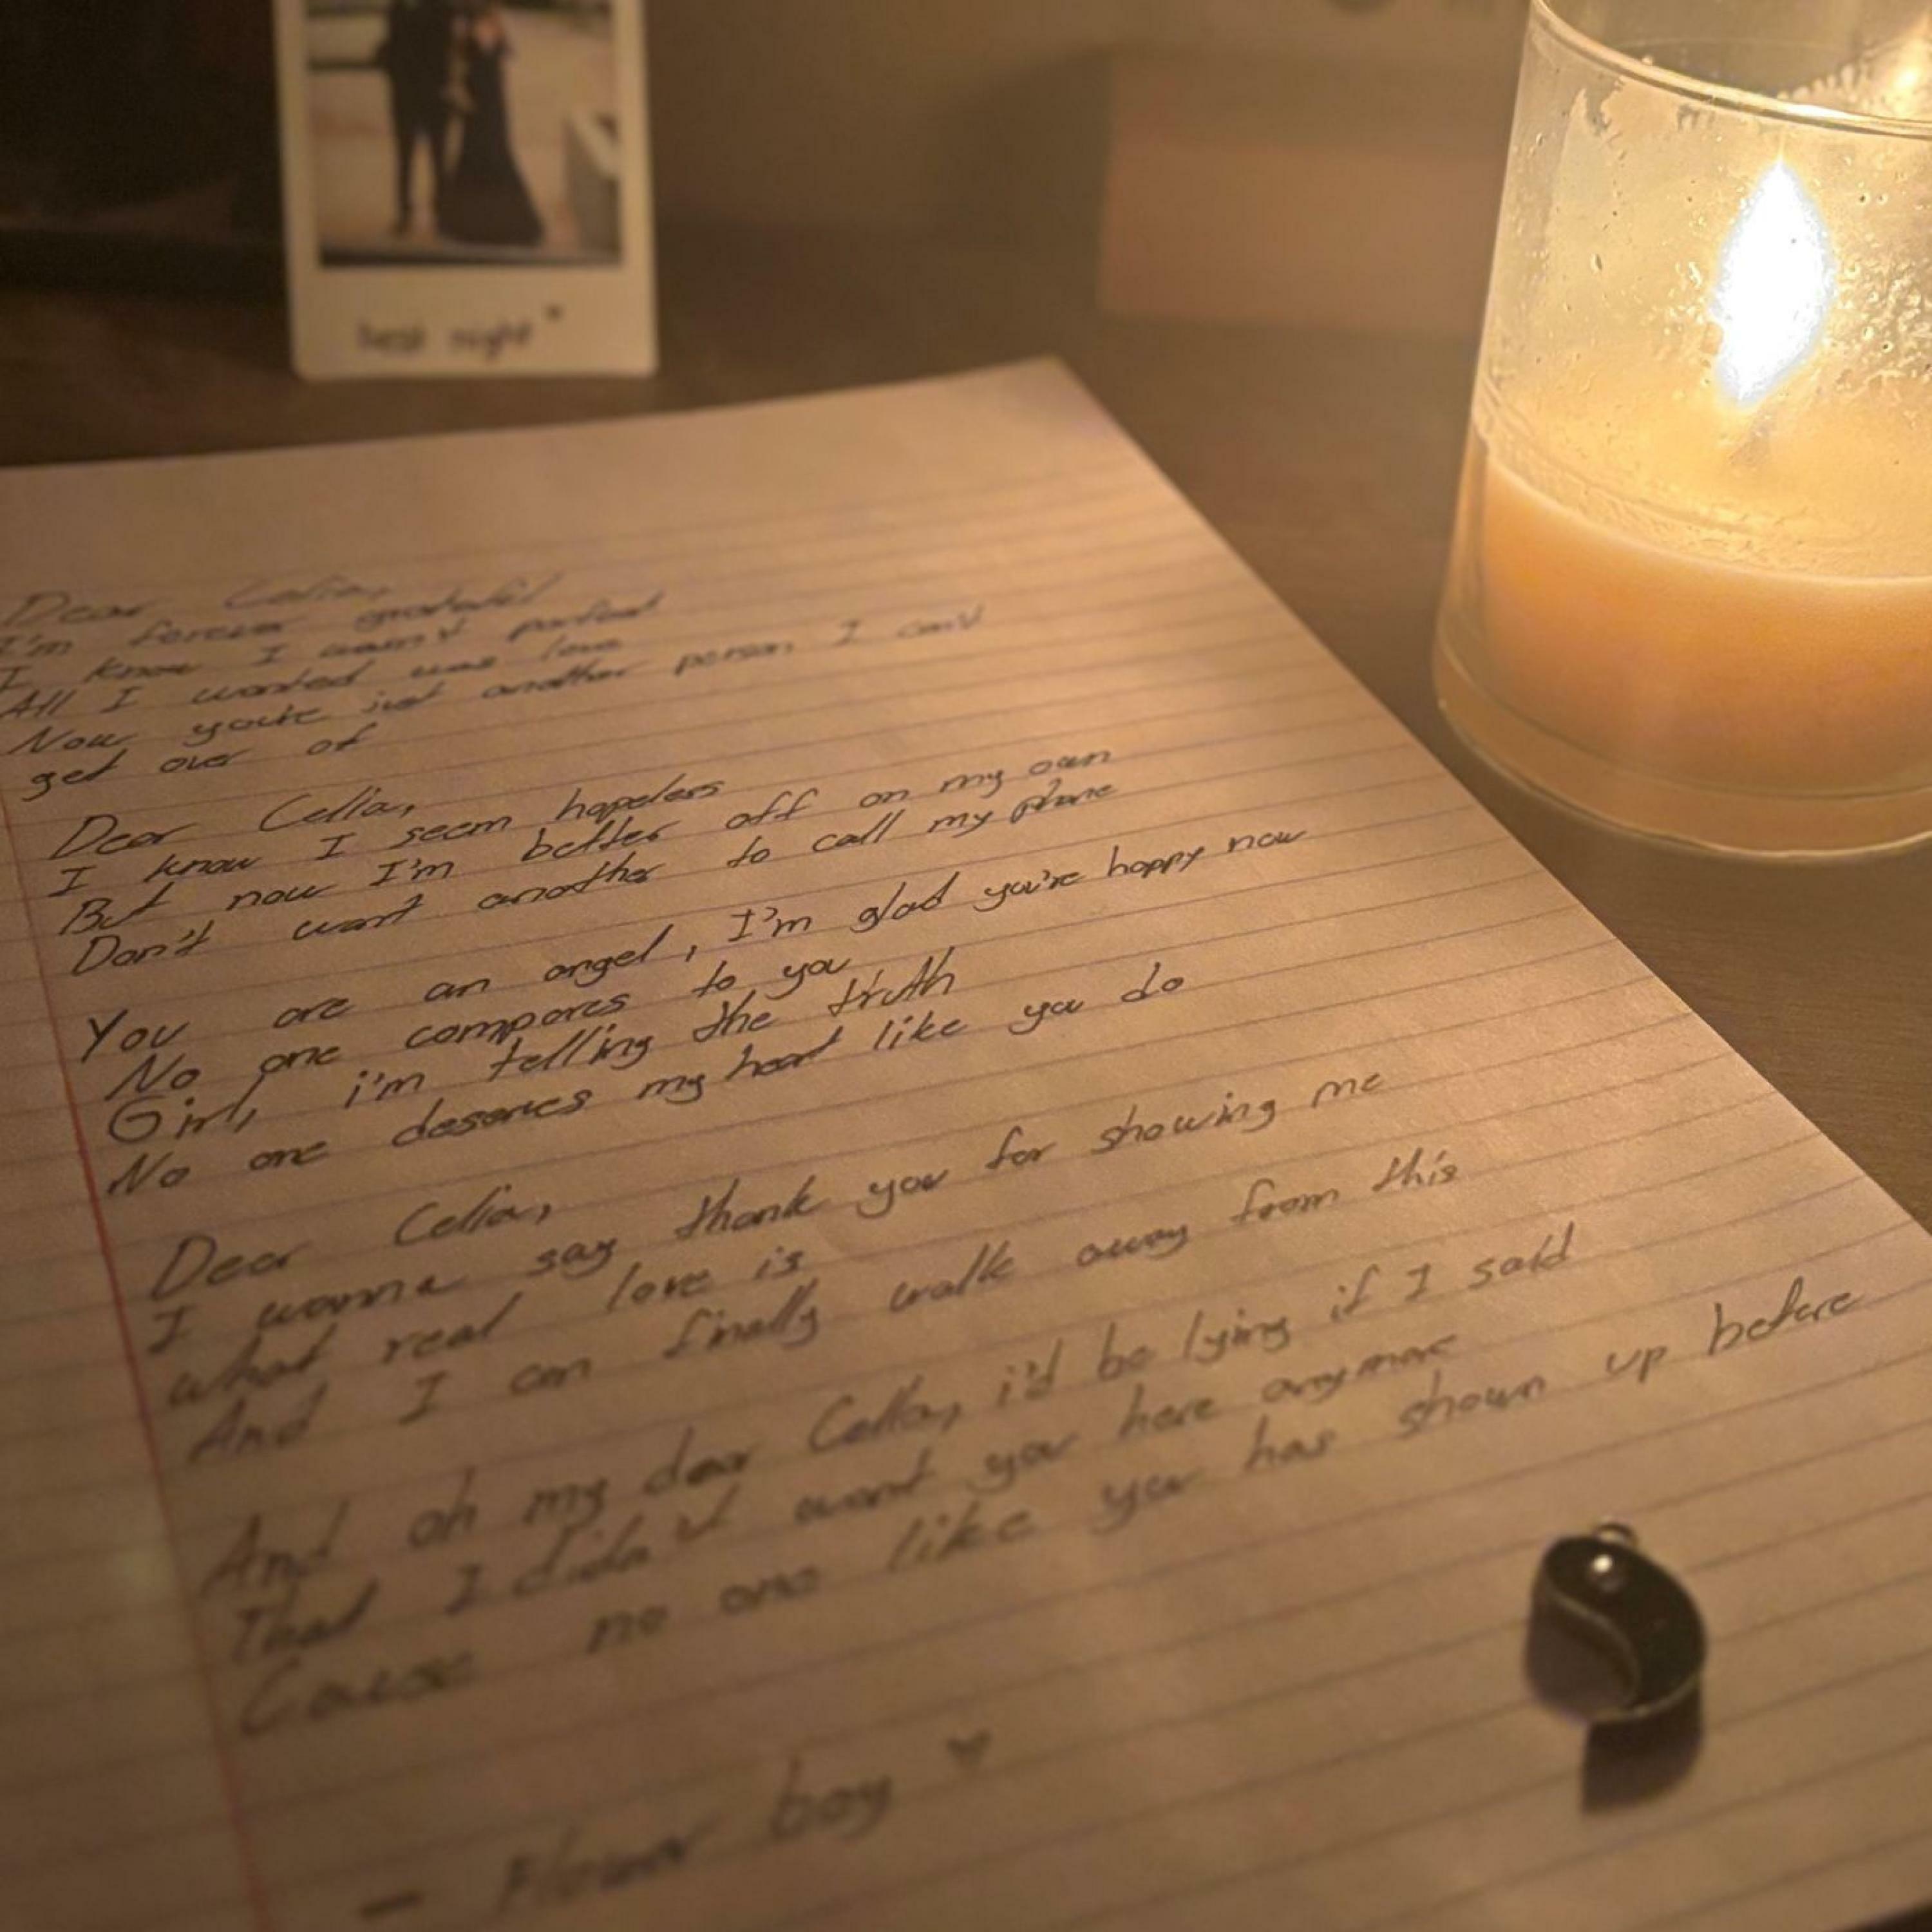 best night
Dear Celia,
I'm forever grateful
I know I wasn't perfect
All I wanted was love
Now you're just another person I can't
get over of
Dear Celia,
I know I seem hopeless
But now I'm better off on my own
Don't want another to call my phone
You are an angel, I'm glad you're happy now
No one compares to you
Girl, i'm telling the truth
No one deserves my heart like you do
Dear Celia,
I wanna say thank you for showing me
what real love is
And I can finally walk away from this
And oh my dear Celia, i'd be lying if I said
That I didn't want you here anymore
Cause no one like you has shown up before
- Flower boy ♥